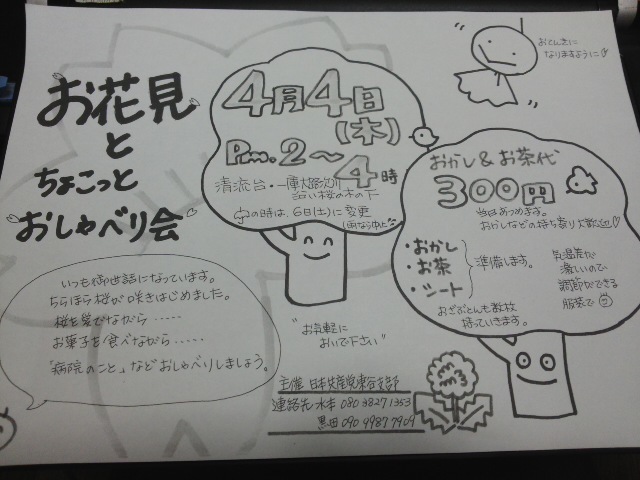 お花見
と
ちょこっと
おしゃべり会
4月4日
(木)
Pm.2～4時
清流台・一庫大路次川
沿い桜の木の下
の時は、6日(土)に変更
おてんきに
なりますように
おかし&お茶代
300円
当日あつめます。
おかしなどの持ち寄り大歓迎♡
・おかし
・お茶
・シート
準備します。
おざぶとんも数枚
持っていきます。
気温差が
激しいので
調節ができる
服装で
いつも御世話になっています。
ちらほら桜が咲きはじめました。
桜を愛でながら……
お菓子を食べながら……
「病院のこと」などおしゃべりしましょう。
"お気軽に
おいで下さい"
主催 日本共産党東谷支部
連絡先 水本 080 3827 1353
黒田 090 9987 7909